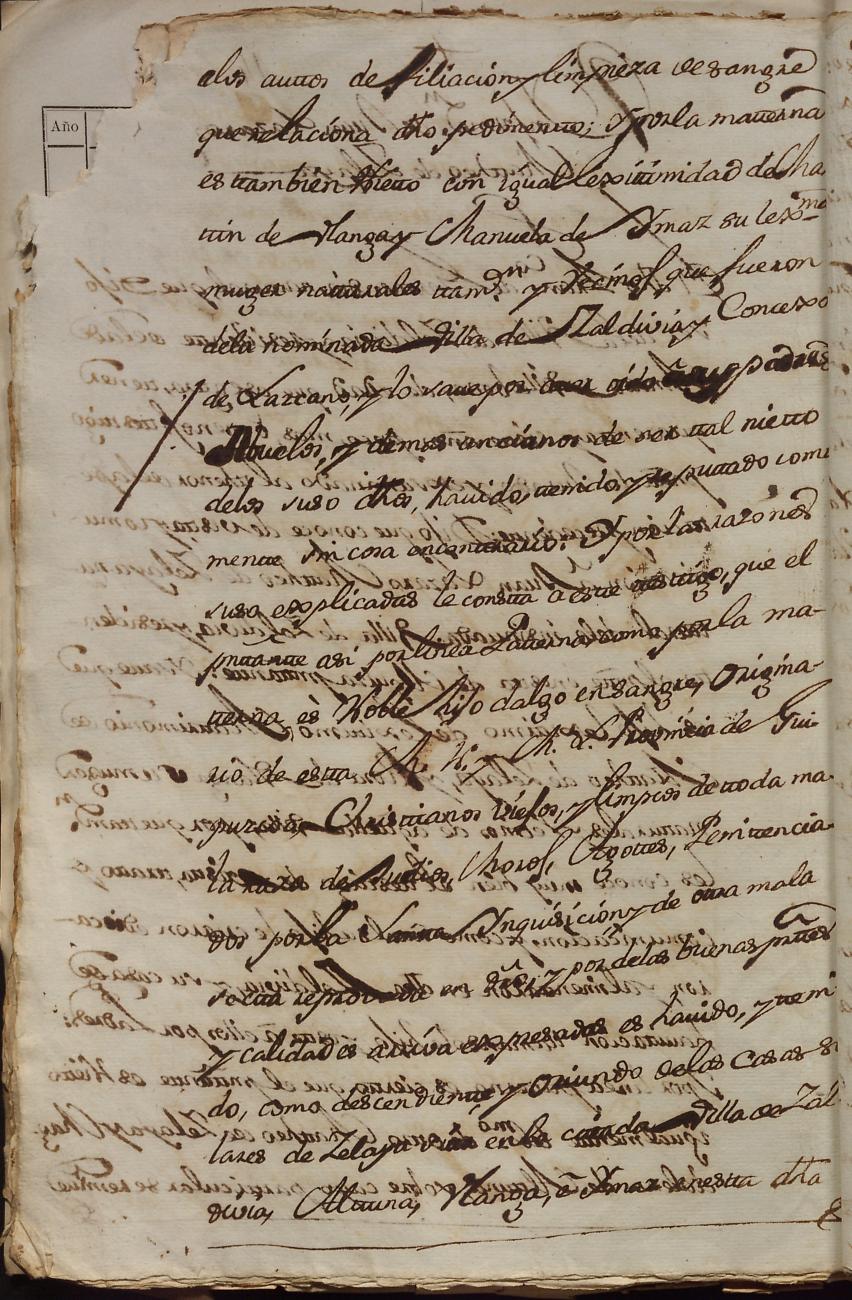 Año
alos auttos de filiación y limpieza de sangre
que relaciona dho pedimento; Y por la matterna
es ttambien Nietto con igual lexitimidad de Ma
ttin de Ylanga y Manuela de Ymaz su lexma
muger natturales ttamvn y Vecinos que fueron
dela nominada Villa de Zaldivia y Concexo
de Lazcano, y lo save por oido padres
Abuelos, y demas ancianos de ser ttal nietto
delos suso dhos, havido, ttenido, y reputtado comu
mente sin cosa encontrario. Y por las razones
suso explicadas le constta a este testtigo, que el
asi por linea Patterna como por la ma-
tterna es Noble hijo dalgo en sangre, origina
rio de estta M. N. y M. L. Provincia de Gui
puzcoa, Christtianos Viejos, y limpios de ttoda ma
la raza de Judios, Moros, Agottes, Penittencia
dos por la Santta Ynquisición y de ottra mala
sectta reprovada en dro: Y por delas buenas parttes
y calidades arriva expresadas es havido, y tteni
do, como descendiente y oriundo delas Casas so
lares de Zelaya en la cittada Villa de Zal
divia, Altuna, Ylanga, è Ymaz en estta dha